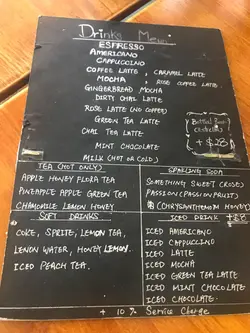 Drinks Menu
ESPRESSO
AMERICANO
CAPPUCCINO
COFFEE LATTE, CARAMEL LATTE
MOCHA, ROSE COFFEE LATTE
GINGERBREAD MOCHA
DIRTY CHAI LATTE
ROSE LATTE (NO COFFEE)
GREEN TEA LATTE
CHAI TEA LATTE
MINT CHOCOLATE
MILK (HOT OR COLD)
Bottled Beer
+$28
TEA (HOT ONLY)
APPLE HONEY FLORA TEA
PINEAPPLE APPLE GREEN TEA
CHAMOMILE LEMON HONEY
SPARLING SODA
SOMETHING SWEET (ROSE)
PASSION (PASSION FRUIT)
(CHRYSANTHEMUM HONEY)
SOFT DRINKS
COKE, SPRITE, LEMON TEA,
LEMON WATER, HONEY LEMON.
ICED PEACH TEA.
ICED DRINK +$8
ICED AMERICANO
ICED CAPPUCCINO
ICED LATTE
ICED MOCHA
ICED GREEN TEA LATTE
ICED MINT CHOCOLATE
ICED CHOCOLATE.
+ 10 % Service Charge